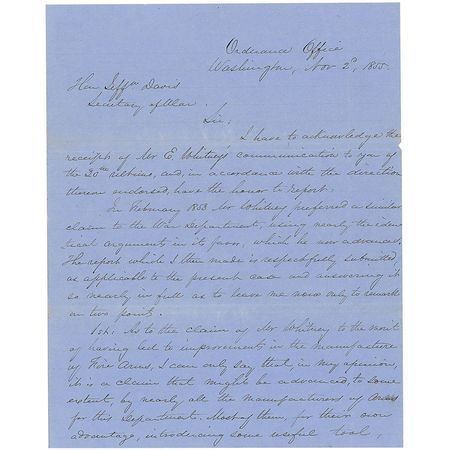 Ordnance Office
Washington, Nov 2d, 1855.
Hon Jeffn Davis
Secretary of War.
Sir;
I have to acknowledge the
receipt of Mr E. Whitney's communication to you of
the 20th ultimo, and, in accordance with the direction
thereon endorsed, have the honor to report:
In February 1853 Mr Whitney preferred a similar
claim to the War Department, using nearly the iden-
tical arguments in its favor, which he now advances.
The report which I then made is respectfully submitted,
as applicable to the present case and answering it
so nearly in full as to leave me now only to remark
on two points.
1st: As to the claim of Mr Whitney to the merit
of having led to improvements in the manufacture
of Fire Arms, I can only say that, in my opinion,
it is a claim that might be advanced, to some
extent, by nearly all the manufacturers of Arms
for this Department. Most of them, for their own
advantage, introducing some useful tool,